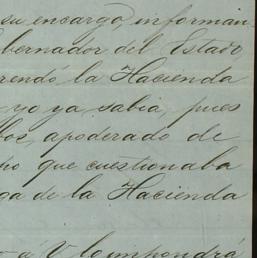 su encargo, informan
bernador del Estado
rendó la Hacienda
yo ya sabia, pues
bos, apoderado de
ho que cuestionaba
ga de la Hacienda
á V. lo impondrá